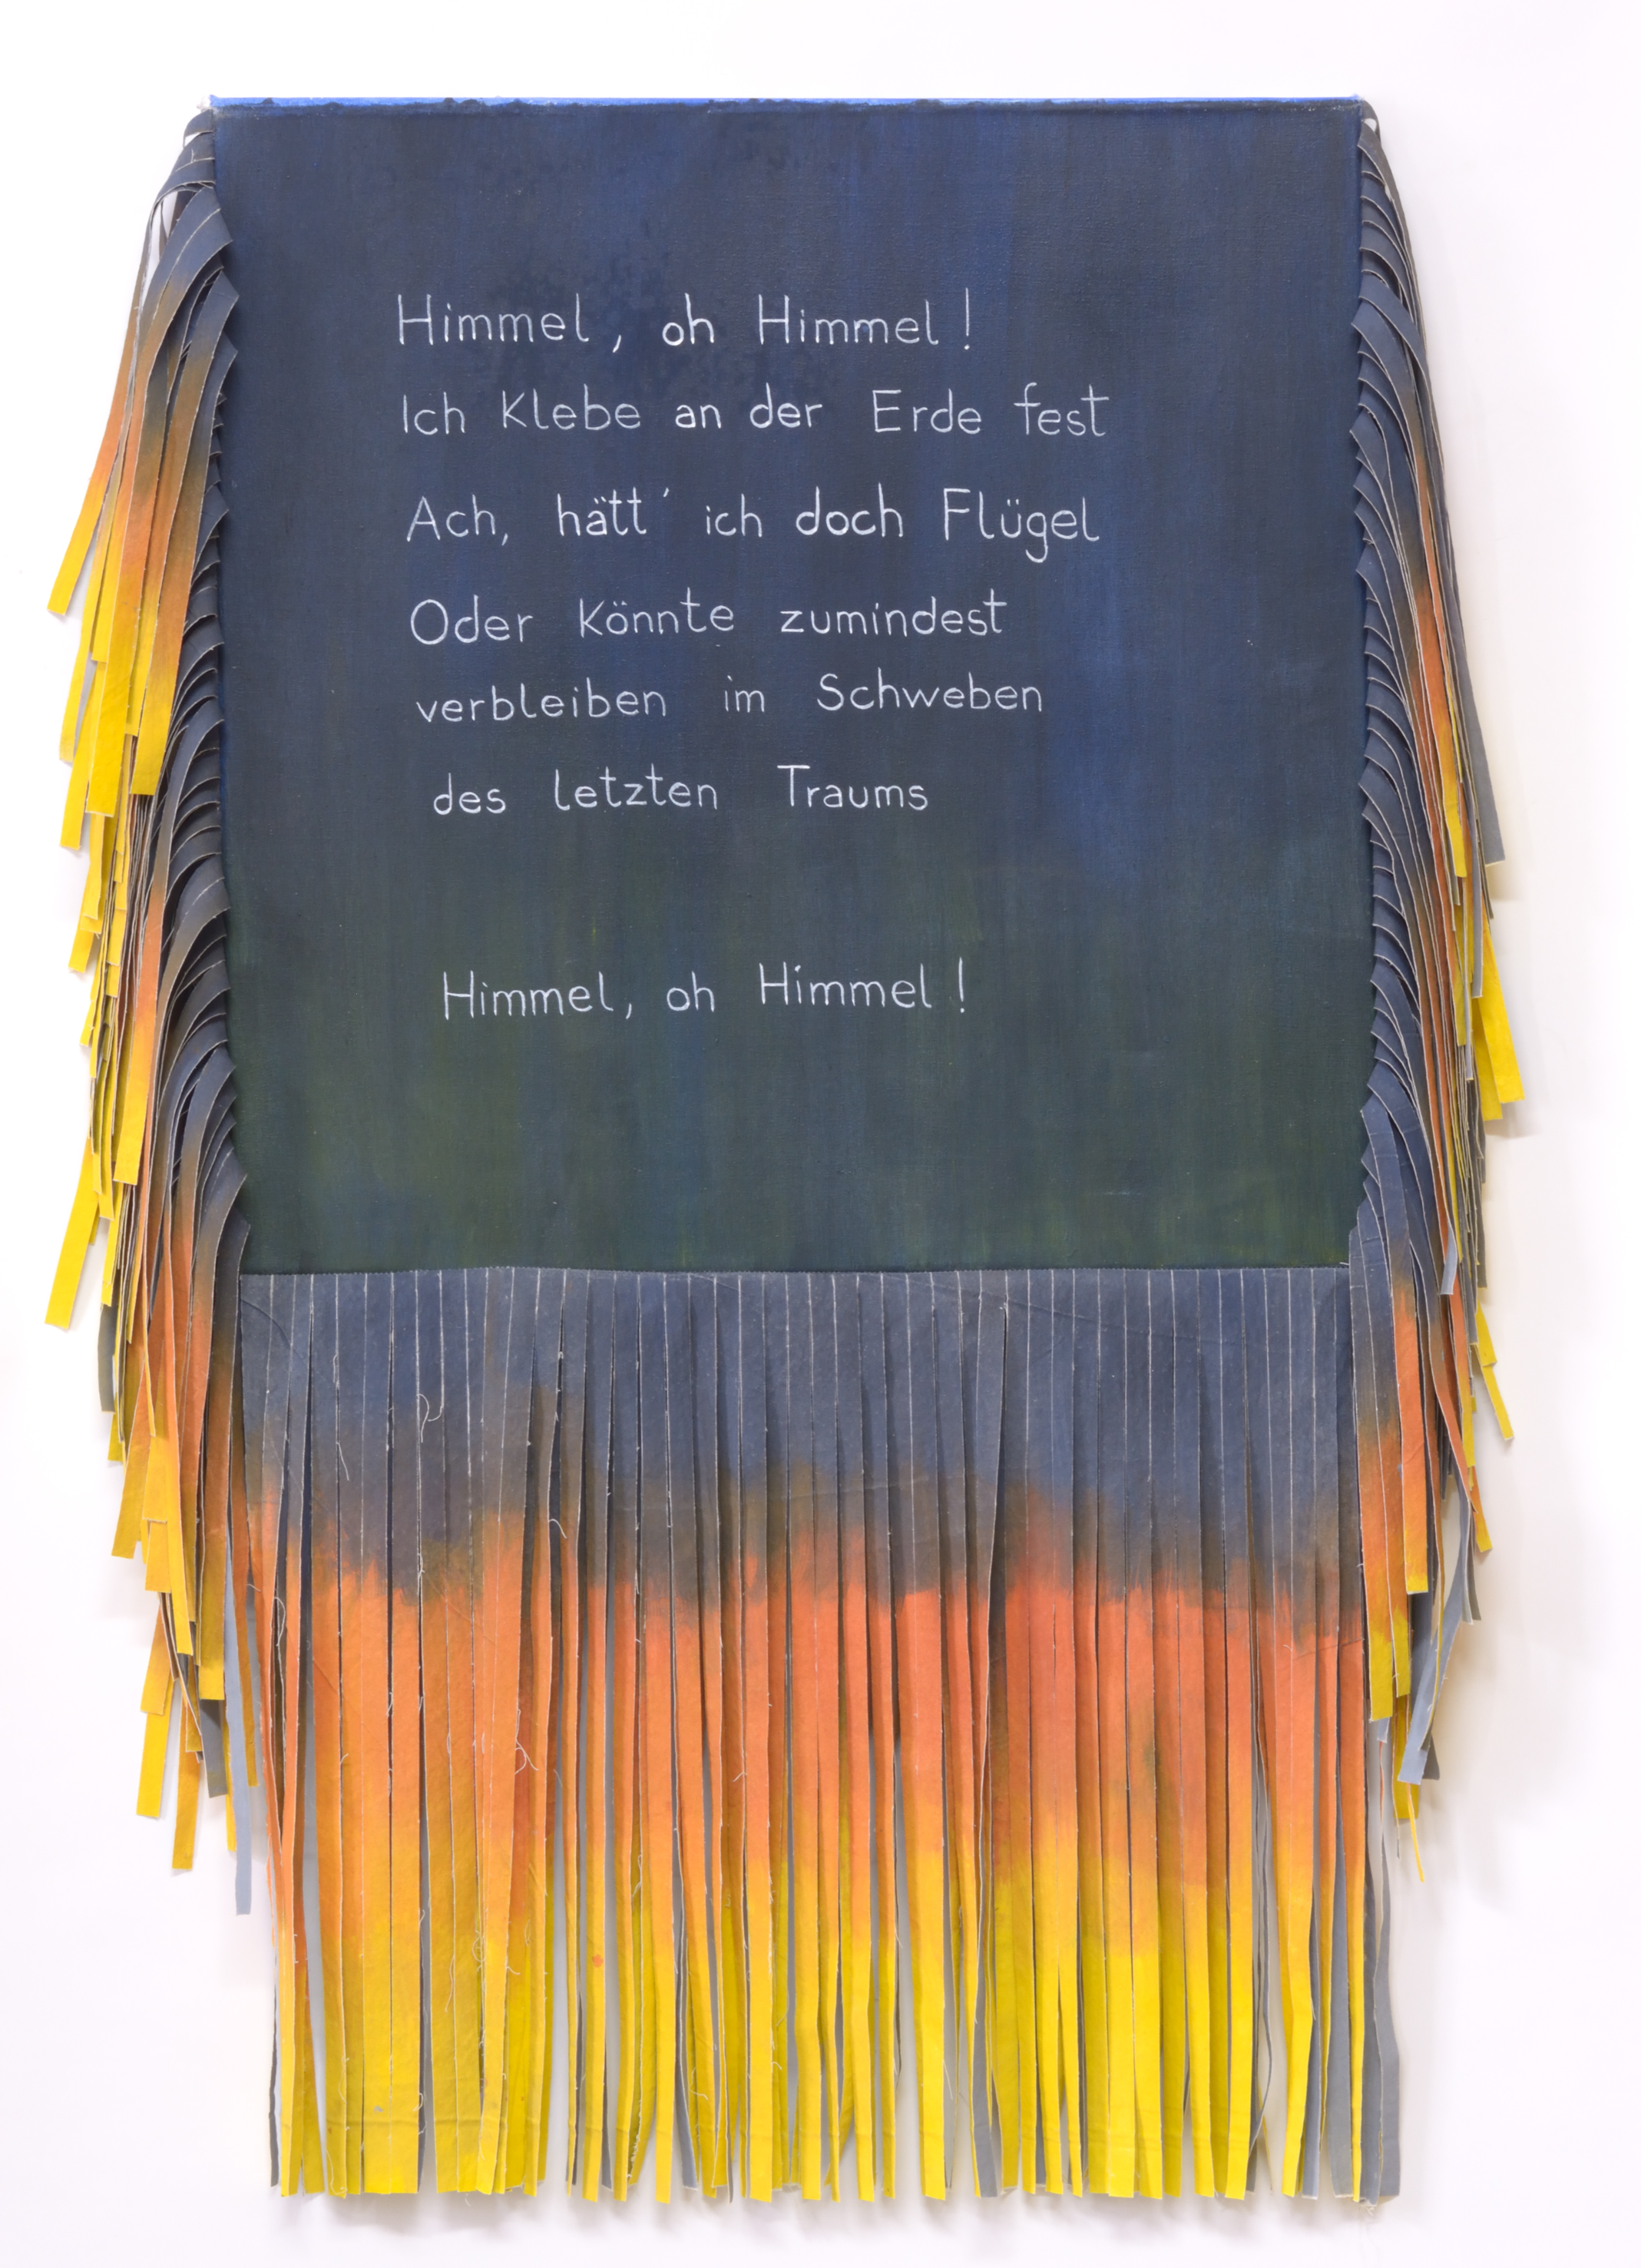 Himmel, oh Himmel!
Ich Klebe an der Erde fest
Ach, hätt' ich doch Flügel
Oder Könnte zumindest
verbleiben im Schweben
des letzten Traums
Himmel, oh Himmel!